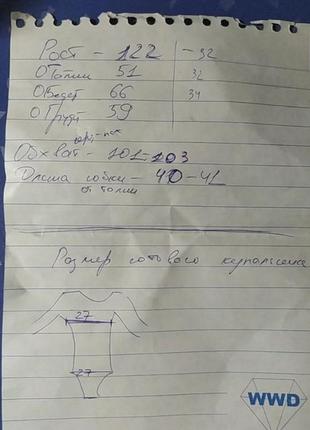 Рост - 122 - 32
О Талии 51 32
О Бедер 66 34
О Груди 59
Обхват - 101-103
Длина юбки - 40-41
от талии
Размер готового купальника
27
27
WWD